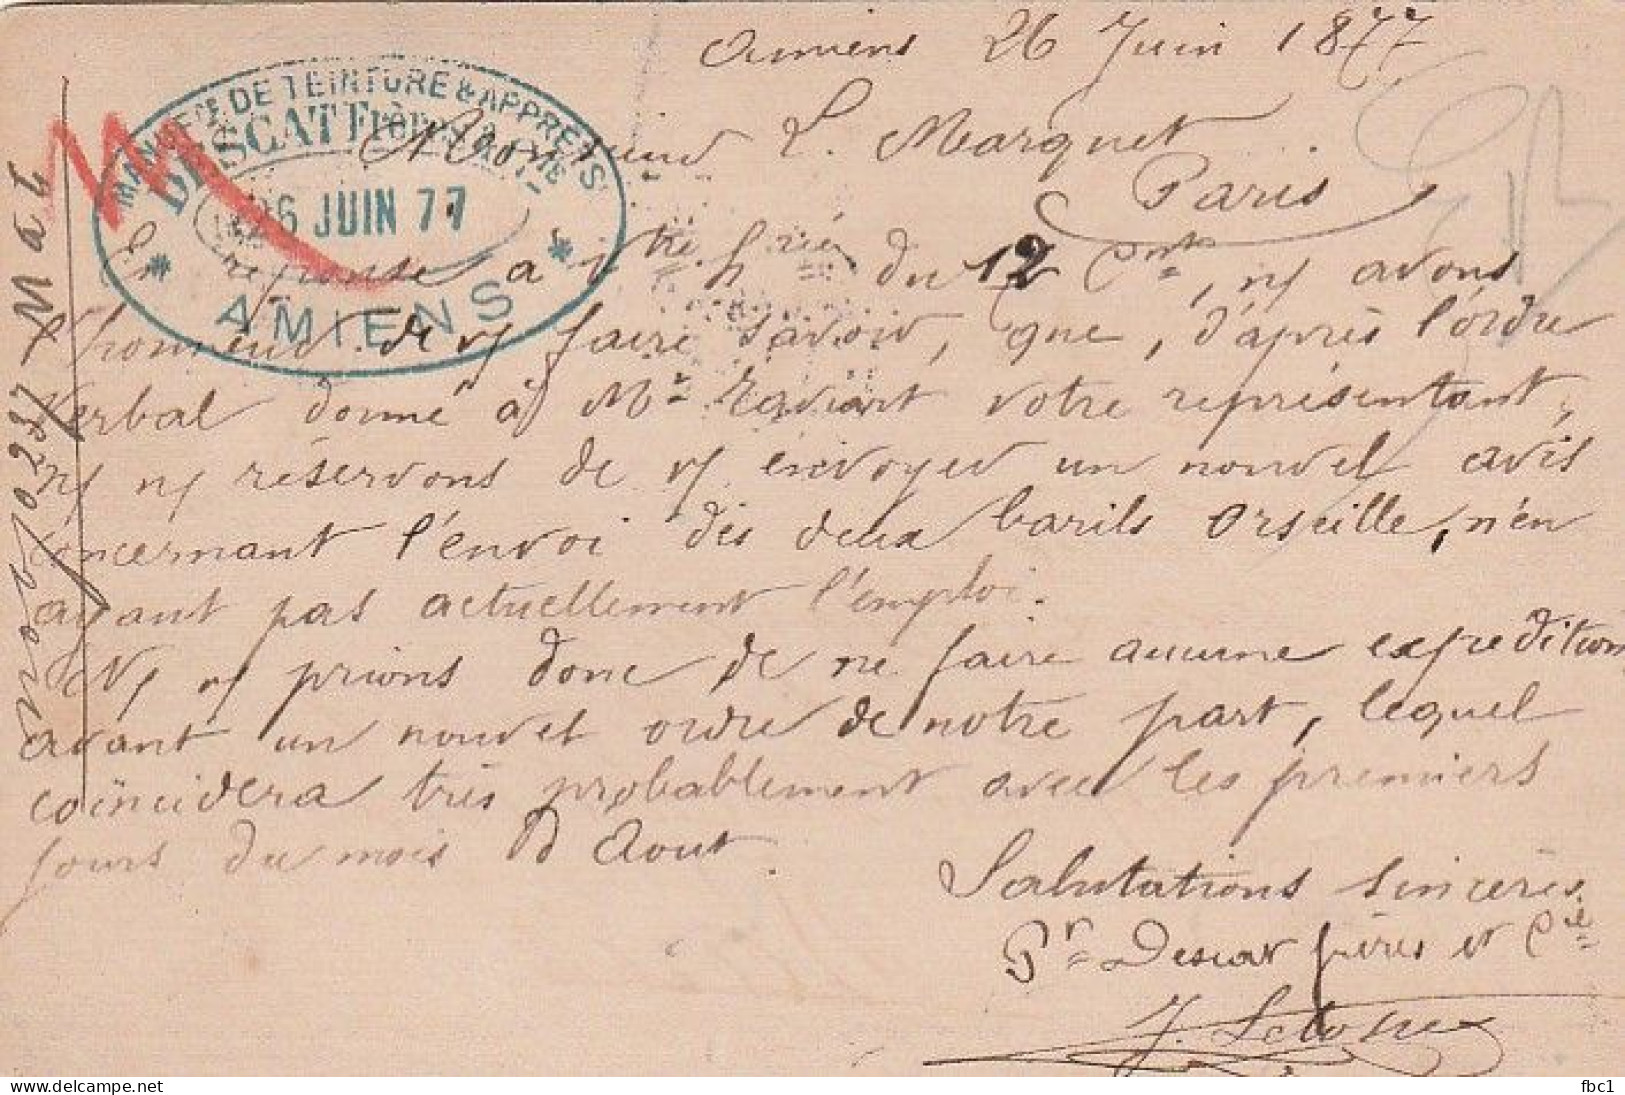 Amiens 26 Juin 1877
MANUFre DE TEINTURE & APPRETS
DESCAT Frères
26 JUIN 77
AMIENS
Monsieur L. Marquet
Paris
En réponse à du 12 Cnt, n/ avons
l'honneur de v/ faire savoir, que, d'après l'ordre
verbal donné à Mr votre représentant,
n/ n/ réservons de v/ envoyer un nouvel avis
concernant l'envoi des deux barils Orseille, n'en
ayant pas actuellement l'emploi.
N/ v/ prions donc de ne faire aucune expédition
avant un nouvel ordre de notre part, lequel
coïncidera très probablement avec les premiers
jours du mois d'Aout.
Salutations sincères
Pr Descat frères et Cie
fbc1